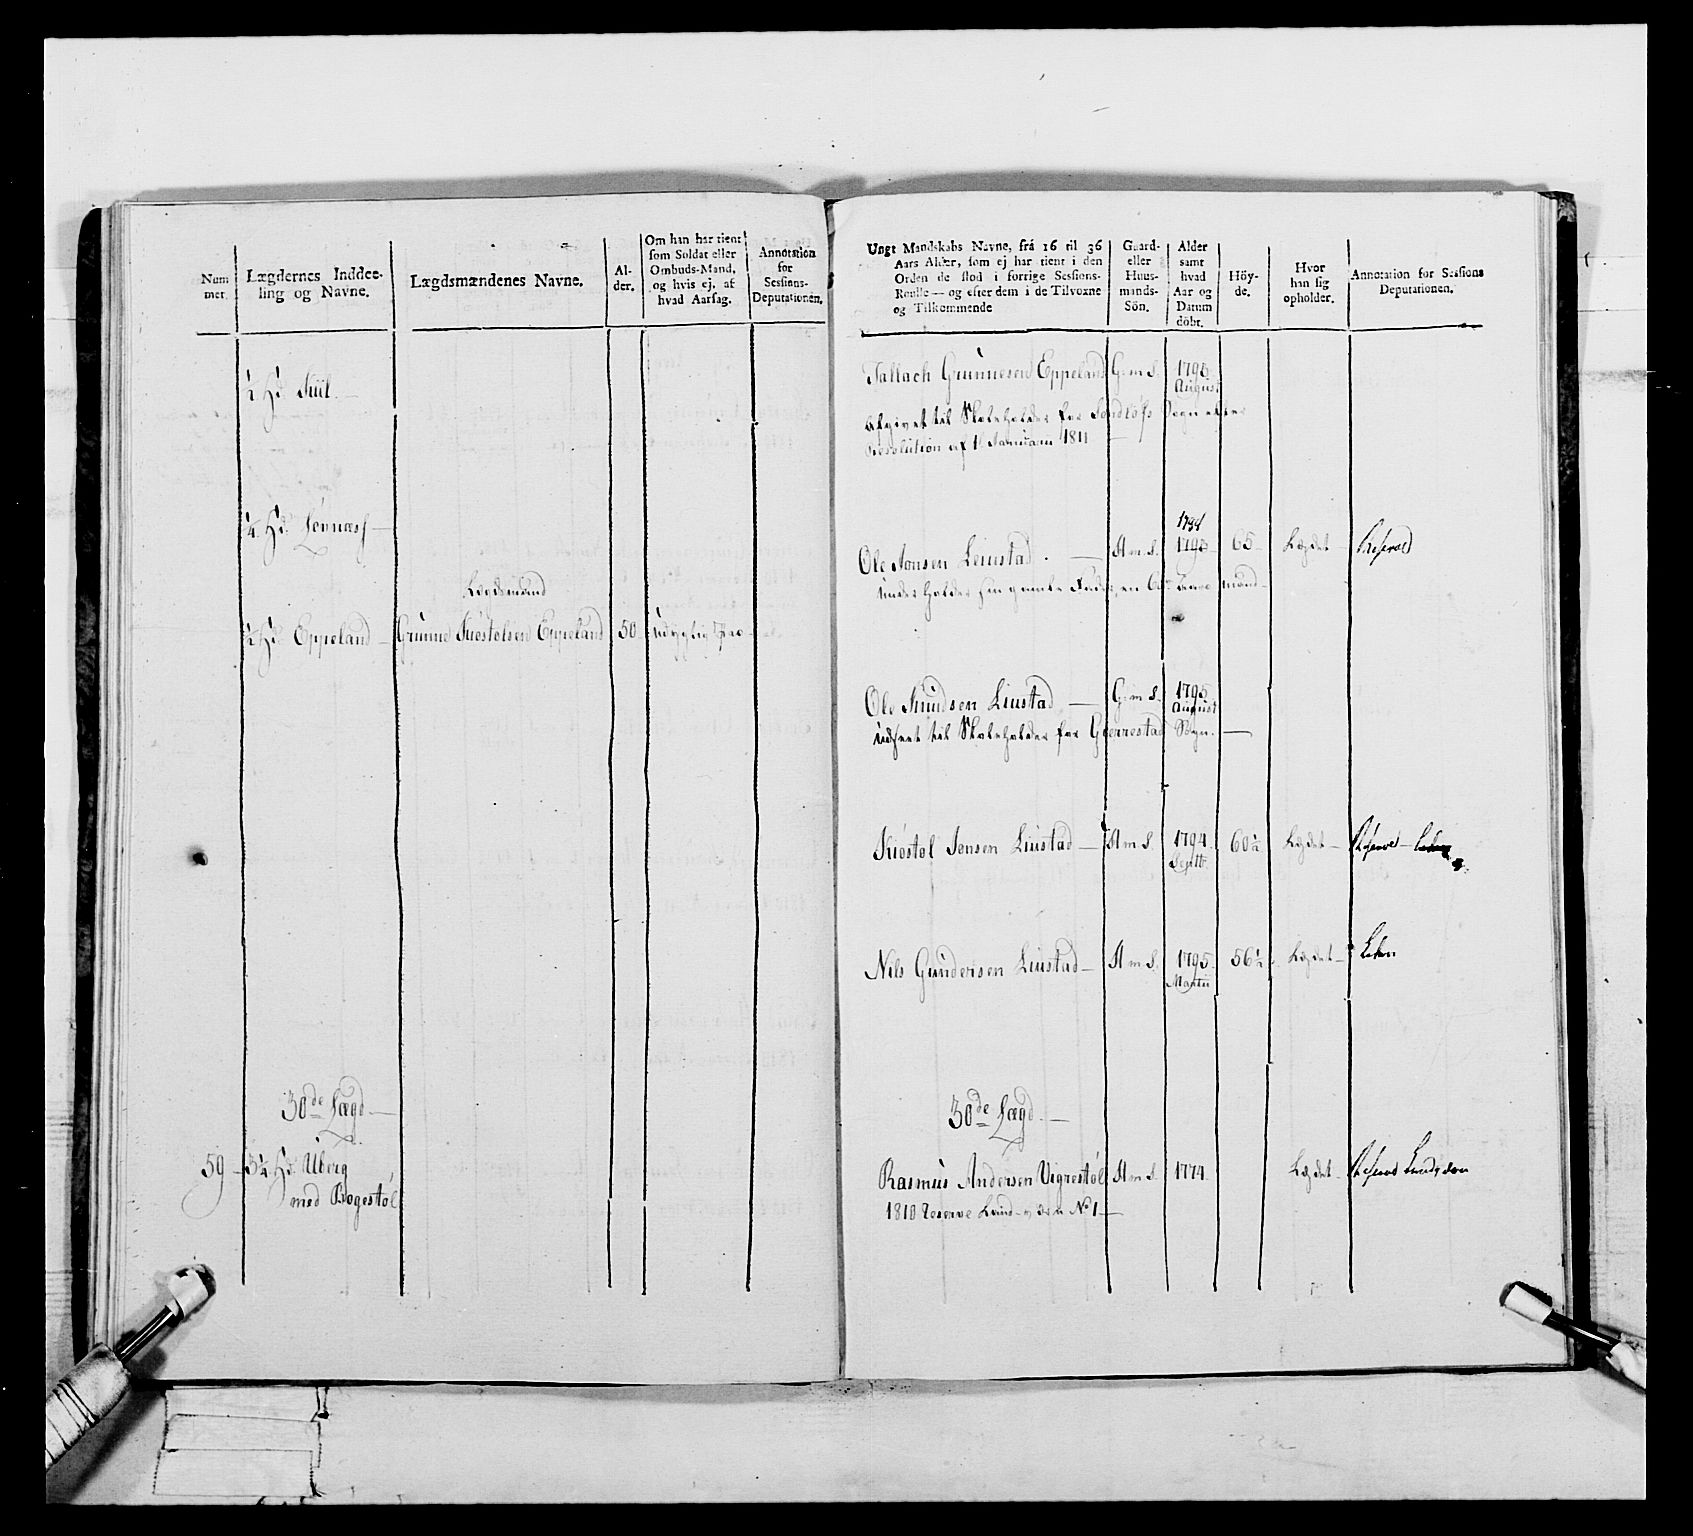 Num
mer.
Lægdernes Inddee-
ling og Navne.
Lægdsmændenes Navne.
Al-
der.
Om han har tient
som Soldat eller
Ombuds-Mand,
og hvis ej, af
hvad Aarsag.
Annotation
for
Sessions-
Deputationen.
½ Hd Kiil.
¼ Hd. Lønnæss
Lægdsmand
½ Hd Eppeland Grunne Kiostelsen Eppeland 50 udygtig
30de Lægd
59 3¼ Hd. Uberg
med Bogestøl
Ungt Mandskabs Navne, frå 16 til 36
Aars Alder, som ej har tient i den
Orden de stod i forrige Sessions-
Roulle — og efter dem i de Tilvoxne
og Tilkommende
Gaard-
eller
Huus-
mands-
Sön.
Alder
samt
hvad
Aar og
Datum
döbt.
Höy-
de.
Hvor
han sig
opholder.
Annotation for Sessions
Deputationen.
Tallach Grunnesen Eppeland G. m S. 1795
August
afgivet til Skoleholder for Sogn efter
Resolution af 1 Januarii 1811
1794
Ole Jonsen Leiustad. H m S. 1793 65 Lægdet Reserve
underholder sin gamle Fader, en
Ole Knudsen Liustad G. m S. 1795
August
udseet til Skoleholder for Gierrestad Sogn.
Kiøstol Jonsen Liustad H m S. 1794 60½ Lægdet Reserve
Septb.
Nils Gundersen Liustad H m S. 1795 56½ Lægdet Liden
Martii
30de Lægd.
Rasmus Andersen Vigrestøl H m S. 1774 Lægdet Reserve
1810 Reserve No 1